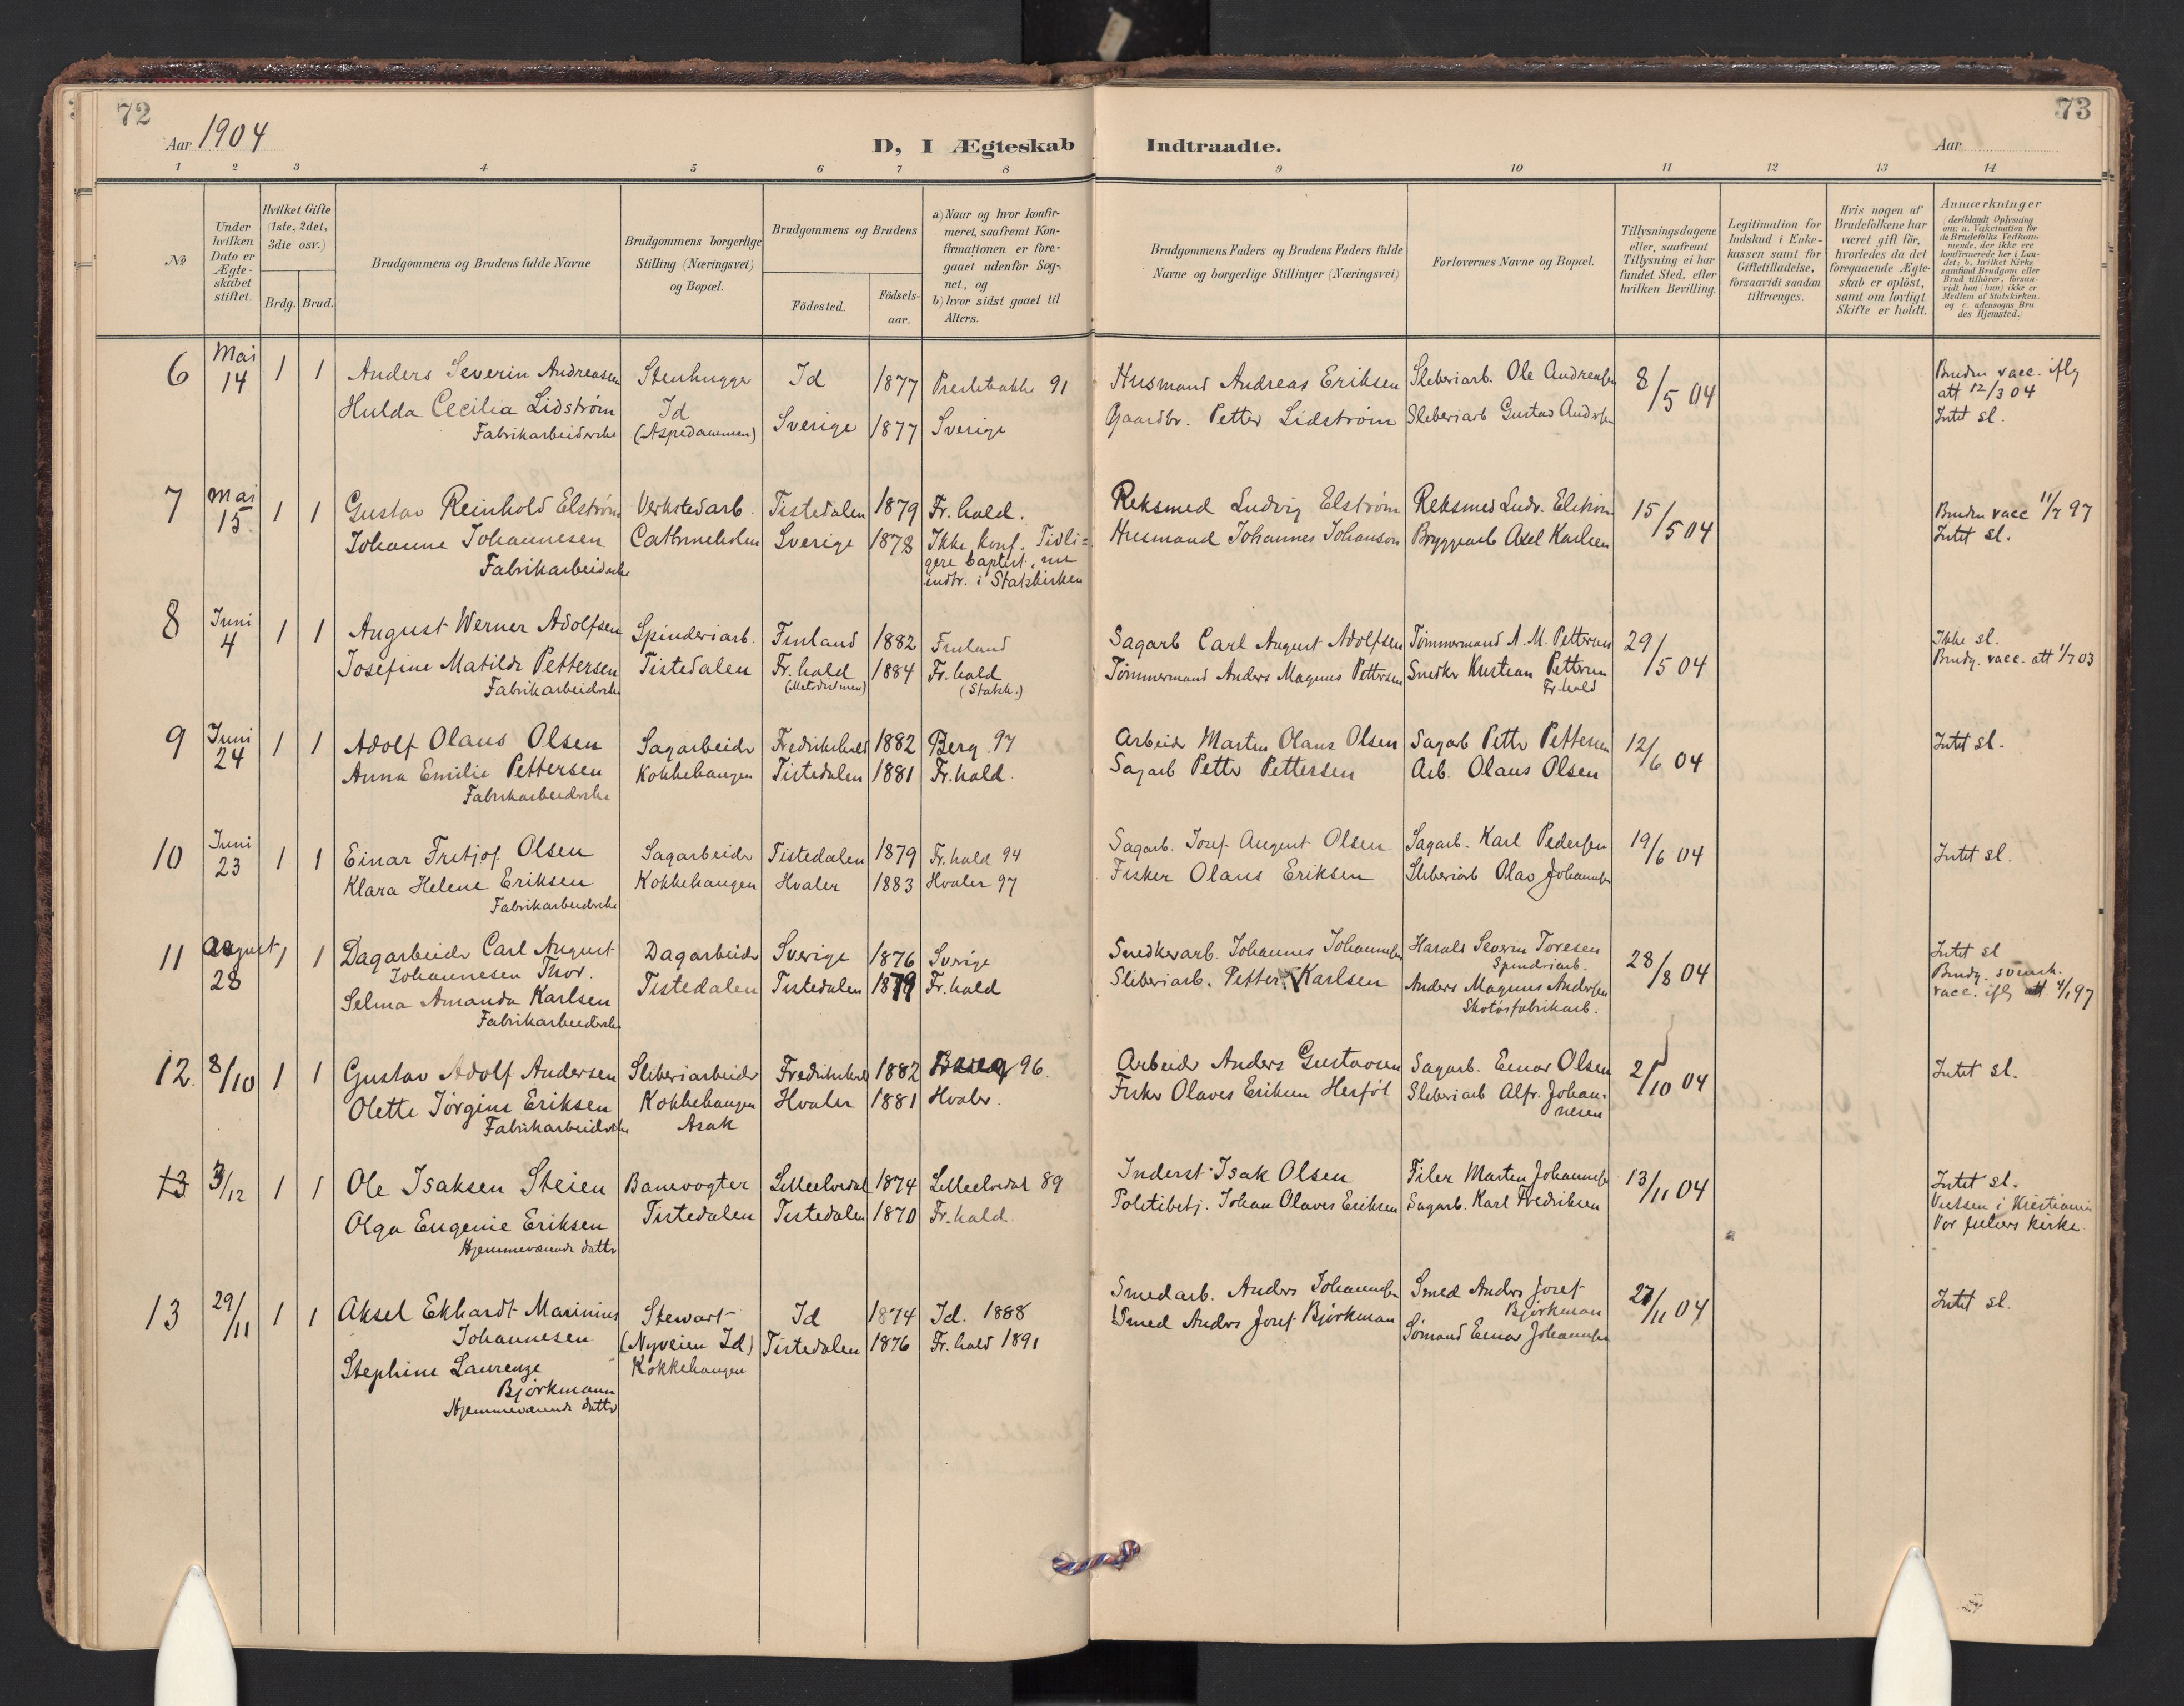 72
73
Aar 1904
D, I Ægteskab Indtraadte.
Aar
1 2 3 4 5 6 7 8 9 10 11 12 13 14
№
Under hvilken Dato er Ægteskabet stiftet.
Hvilket Gifte (1ste, 2det, 3die osv.)
Brdg. Brud.
Brudgommens og Brudens fulde Navne
Brudgommens borgerlige Stilling (Næringsvei) og Bopæl.
Brudgommens og Brudens
Födested.
Födselsaar.
a) Naar og hvor konfirmeret, saafremt Konfirmationen er foregaaet udenfor Sognet, og
b) hvor sidst gaaet til Alters.
Brudgommens Faders og Brudens Faders fulde Navne og borgerlige Stillinger (Næringsvei)
Forlovernes Navne og Bopæl.
Tillysningsdagene eller, saafremt Tillysning ei har fundet Sted, efter hvilken Bevilling.
Legitimation for Indskud i Enkekassen samt for Giftetilladelse, forsaavidt saadan tiltrænges.
Hvis nogen af Brudefolkene har været gift før, hvorledes da det foregaaende Ægteskab er oplöst, samt om lovligt Skifte er holdt.
Anmærkninger (deriblandt Oplysning om: a. Vakcination for de Brudefolks Vedkommende, der ikke ere konfirmerede her i Landet; b. hvilket Kirkesamfund Brudgom eller Brud tilhører, forsaavidt han (hun) ikke er Medlem af Statskirken, og c. udensogns Brudes Hjemsted.)
6 Mai 14 1 1 Anders Severin Andreasen Stenhugger Id 1877 Prestebakke 91 Husmand Andreas Eriksen Sliberiarb. Ole Andreasen 8/5 04 Bruden vacc. iflg att 12/3 04
Hulda Cecilia Lidström Id Sverige 1877 Sverige Gaardbr. Petter Lidström Sliberiarb Gustav Andersen Intet sl.
Fabrikarbeiderske (Aspedammen)
7 Mai 15. 1 1 Gustav Reinhold Elström Verkstedarb. Tistedalen 1879 Fr.hald. Reksmed Ludvig Elström Reksmed Ludv. Elström 15/5 04 Bruden vacc 11/7 97
Johanne Johannesen Cathrineholm Sverige 1878 Ikke konf. Tidligere baptist, nu indtr. i Statskirken Husmand Johannes Johanson Bryggearb Axel Karlsen Intet sl.
Fabrikarbeiderske
8 Juni 4 1 1 August Werner Adolfsen Spinderiarb. Finland 1882 Finland Sagarb Carl August Adolfsen Tömmermand A. M. Pettersen 29/5 04 Ikke sl.
Josefine Matilde Pettersen Tistedalen Fr.hald 1884 Fr.hald Tömmermand Anders Magnus Pettersen Snedker Kristian Pettersen Fr.hald Brudg. vacc. att 1/7 03
Fabrikarbeiderske (Metodistmen) (Statsk.)
9 Juni 24 1 1 Adolf Olaus Olsen Sagarbeider Fredrikshald 1882 Berg 97 Arbeider Martin Olaus Olsen Sagarb Petter Pettersen 12/6 04 Intet sl.
Anna Emilie Pettersen Kokkehaugen Tistedalen 1881 Fr.hald. Sagarb Petter Pettersen Arb. Olaus Olsen
Fabrikarbeiderske
10 Juni 23 1 1 Einar Fritjof Olsen Sagarbeider Tistedalen 1879 Fr.hald 94 Sagarb. Josef August Olsen Sagarb. Karl Pedersen 19/6 04 Intet sl.
Klara Helene Eriksen Kokkehaugen Hvaler 1883 Hvaler 97 Fisker Olaus Eriksen Sliberiarb Olav Johannesen
Fabrikarbeiderske
11 August 28 1 1 Dagarbeider Carl August Dagarbeider Sverige 1876 Sverige Snedkerarb. Johannes Johannesen Harald Severin Toresen 28/8 04 Intet sl
Johannesen Thor. Spinderiarb. Brudg. svensk.
Selma Amanda Karlsen Tistedalen Tistedalen 1879 Fr.hald Sliberiarb. Petter Karlsen Anders Magnus Andersen vacc. iflg att. 4/1 97
Fabrikarbeiderske Skotöifabrikarb.
12. 8/10 1 1 Gustav Adolf Andersen Sliberiarbeider Fredrikshald 1882 Berg 96. Arbeider Anders Gustavsen Sagarb. Einar Olsen 2/10 04 Intet sl.
Olette Jörgine Eriksen Kokkehaugen Hvaler 1881 Hvaler. Fisker Olaves Eriksen Herföl Sliberiarb Alfr. Johannesen
Fabrikarbeiderske Asak
13 3/12 1 1 Ole Isaksen Steien Banevogter Lilleelvedal 1874 Lilleelvedal 89 Inderst Isak Olsen Filer Martin Johannesen 13/11 04 Intet sl.
Olga Eugenie Eriksen Tistedalen Tistedalen 1870 Fr.hald. Politibetj. Johan Olaves Eriksen Sagarb. Karl Fredriksen Vielsen i Kristiania
Hjemmeværende datter Vor frelsers kirke
13 29/11 1 1 Aksel Ekhardt Marinius Stewart Id 1874 Id. 1888 Smedarb. Anders Johannesen Smed Anders Josef 27/11 04 Intet sl.
Johannesen (Nyveien Id) Tistedalen 1876 Fr.hald 1891 Smed Anders Josef Björkman Björkman
Stephine Laurenze Kokkehaugen Sömand Einar Johannesen
Björkmann
Hjemmeværende datter